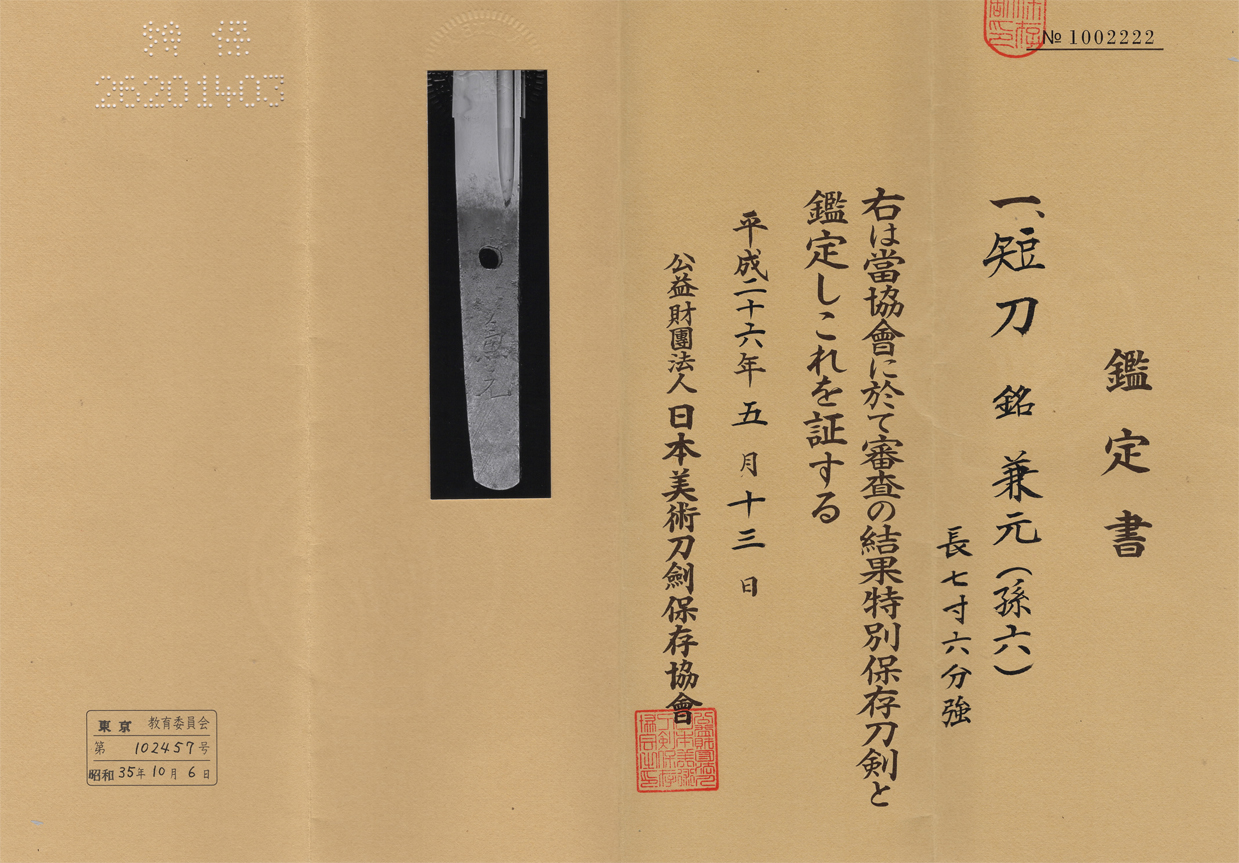 № 1002222
鑑定書
一、短刀 銘 兼元(孫六)
長七寸六分強
右は當協會に於て審査の結果特別保存刀剣と
鑑定しこれを証する
平成二十六年五月十三日
公益財團法人日本美術刀劍保存協會
兼元
特保
26201403
東京 教育委員会
第 102457号
昭和35年10月6日